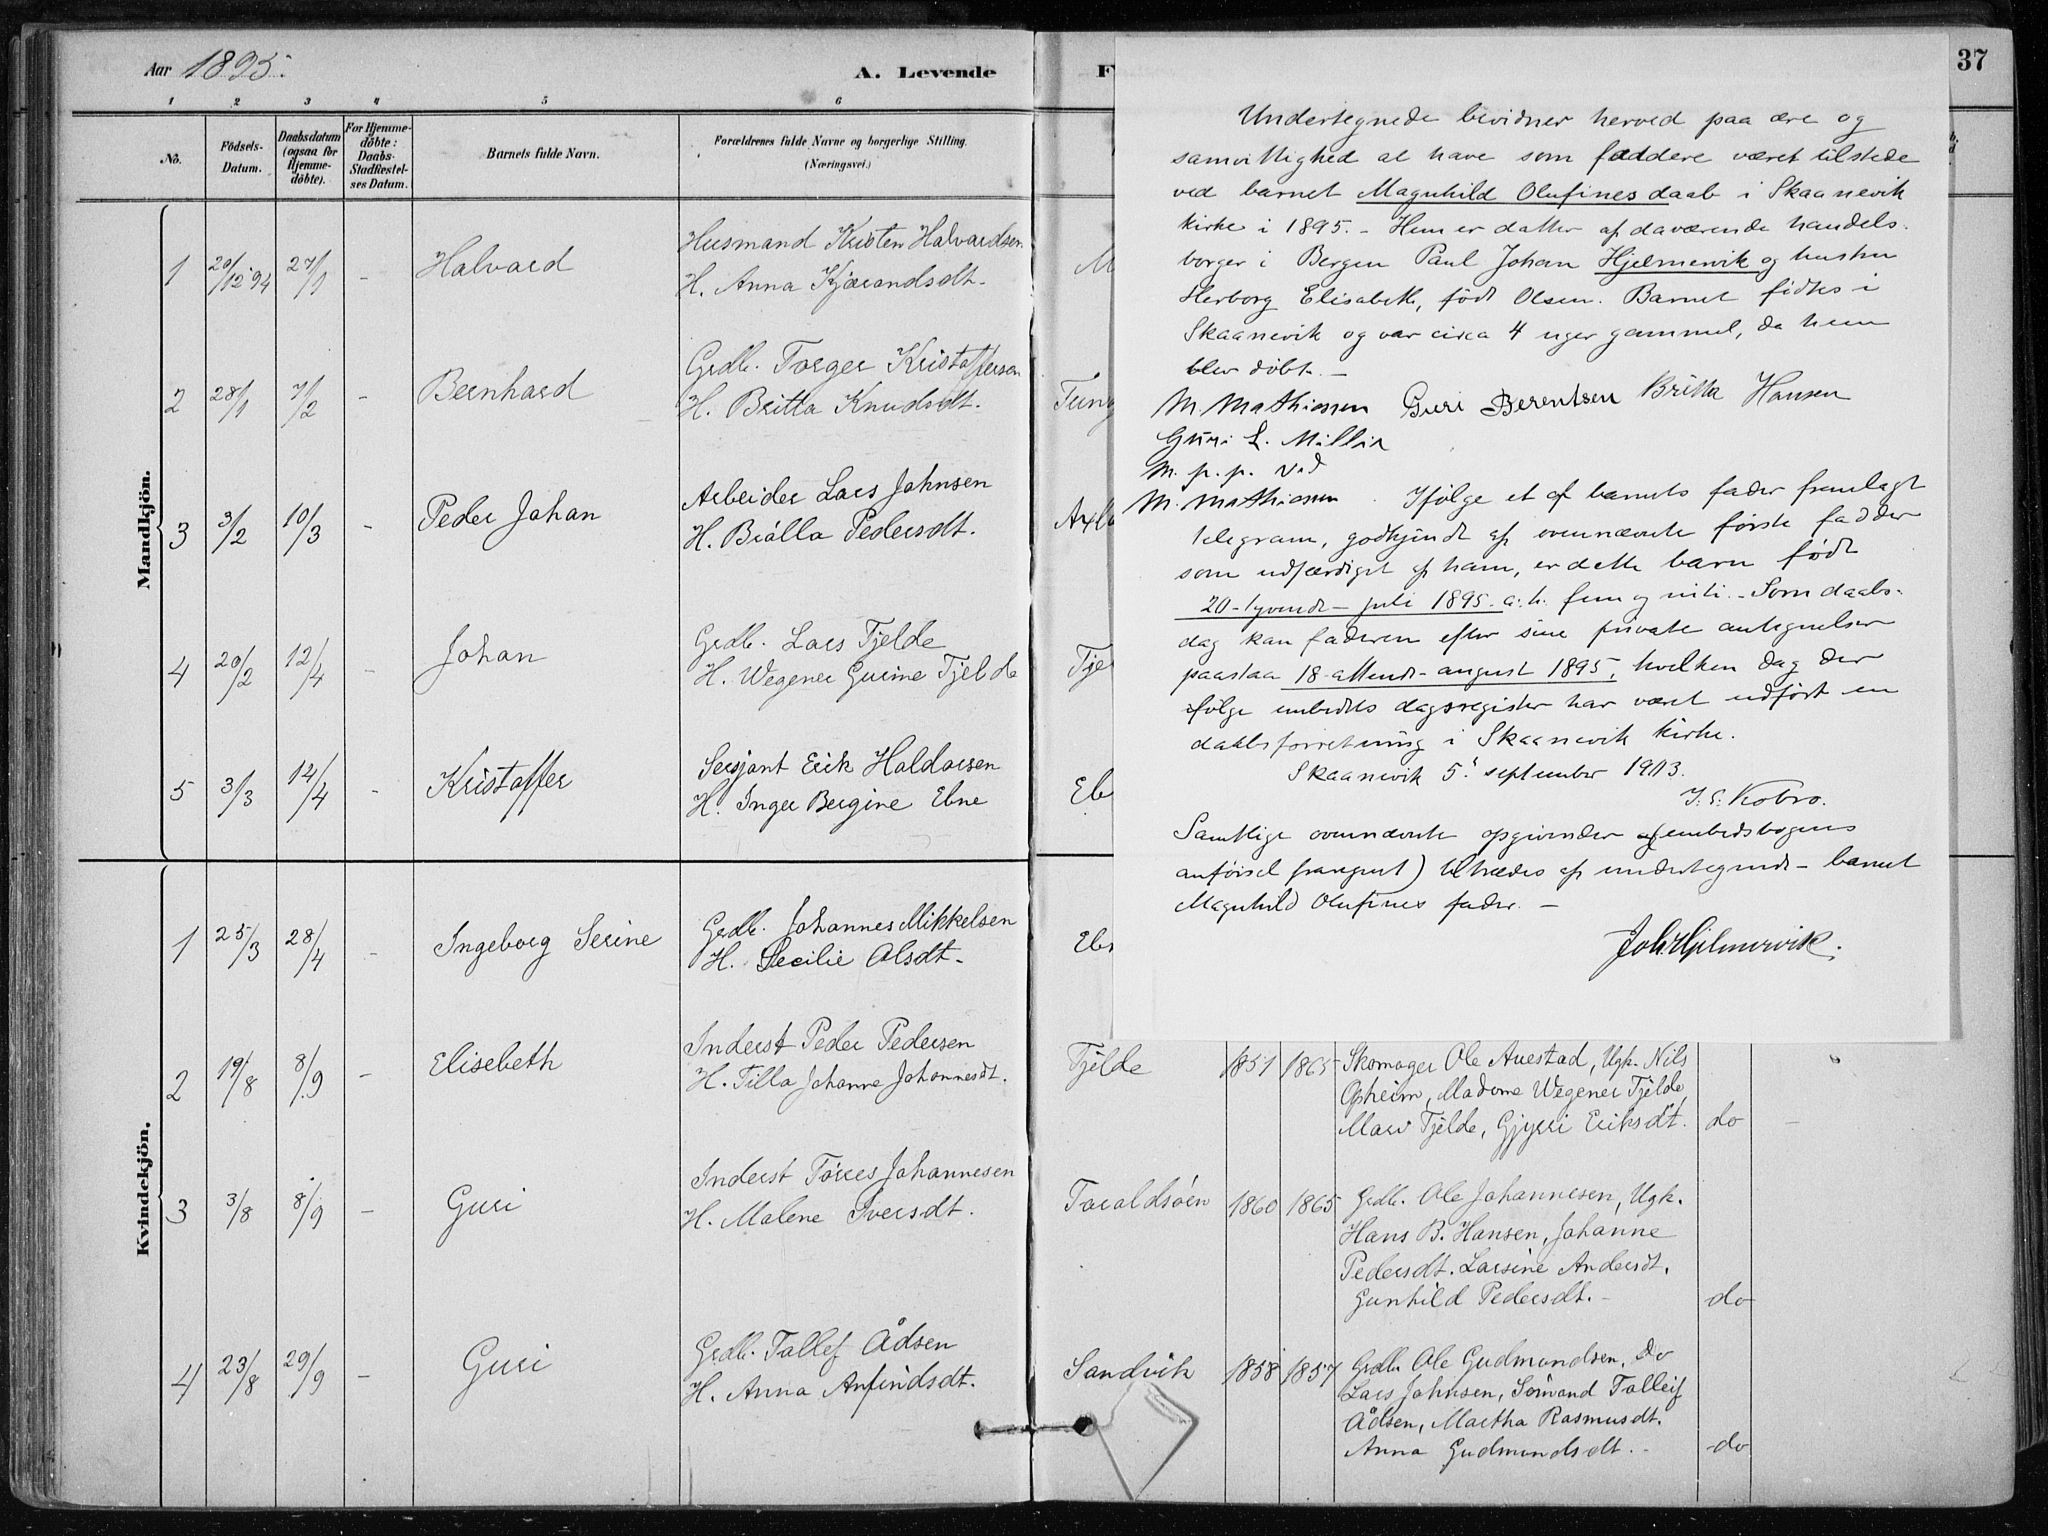 Aar 1895.
A. Levende
F
37
1 2 3 4 5 6
No.
Födsels-
Datum.
Daabsdatum
(ogsaa for
Hjemme-
döbte).
For Hjemme-
döbte:
Daabs-
Stadfæstel-
ses Datum.
Barnets fulde Navn.
Forældrenes fulde Navne og borgerlige Stilling.
(Næringsvei.)
Mandkjön.
1 20/12 94 27/1 - Halvard
Husmand Kristen Halvardsen
H. Anna Kjærandsdt.
M
2 28/1 7/2 - Bernhard
Grdb. Torger Kristoffersen
H. Britta Knudsdt.
Tung
3 3/2 10/3 - Peder Johan
Arbeider Lars Johnsen
H. Pedersdt.
Axla
4 20/2 12/4 - Johan
Grdb. Lars Tjelde
H. Wegener Gurine Tjelde
Tje
5 3/3 14/4 - Kristoffer
Sersjant Erik Haldorsen
H. Inger Bergine Ebne
Eb
Kvindekjön.
1 25/3 28/4 - Ingeborg Serine
Grdb. Johannes Mikkelsen
H. Secilie Olsdt.
Eb
2 19/8 8/9 - Elisebeth
Inderst Peder Pedersen
H. Tilla Johanne Johannesdt.
Tjelde 1851 1865
Skomager Ole Auestad, Ugk. Nils
Opheim, Madame Wegener Tjelde,
Mari Tjelde, Gjyri Eriksdt. do -
3 3/8 8/9 - Guri
Inderst Törres Johannesen
H. Malene Iversdt.
Toraldsöen 1860 1865
Grdb. Ole Johannesen, Ugk.
Hans B. Hansen, Johanne
Pedersdt. Larsine Andersdt.
Gunhild Pedersdt. - do
4 23/8 29/9 - Guri
Grdb. Tollef Ådsen
H. Anna Anfindsdt.
Sandvik 1858 1857
Grdb. Ole Gudmundsen, Do
Lars Johnsen, Sömand Tolleif
Ådsen, Martha Rasmusdt.
Anna Gudmundsdt. - do
Undertegnede bevidner herved paa ære og
samvittighed at have som faddere været tilstede
ved barnet Magnhild Olufines daab i Skaanevik
kirke i 1895. - Hun er datter af daværende handels-
borger i Bergen Paul Johan Hjelmervik og hustru
Herborg Elisabeth, født Olsen. Barnet fødtes i
Skaanevik og var circa 4 uger gammel, da hun
blev døbt. -
M. Mathiassen Guri Berentsen Britta Hansen
Guri L. Millia
m. p. p. ved
M. Mathiassen. Ifølge et af barnets fader fremlagt
telegram, godkjendt af ovennævnte første fadder
som udfærdiget af ham, er dette barn født
20 - tyvende - juli 1895. a: h. fem og niti. - Som daabs-
dag kan faderen efter sine private antegnelser
paastaa 18 - attende - august 1895, hvilken dag der
ifølge embedets dagsregister har været udført en
daabsforretning i Skaanevik kirke.
Skaanevik 5. september 1913.
J. S. Kobro.
Samtlige ovennævnte opgivender af embedsbogens
anførsel fraregnet) tiltrædes af undertegnede - barnet
Magnhild Olufines fader. -
Joh. Hjelmervik.